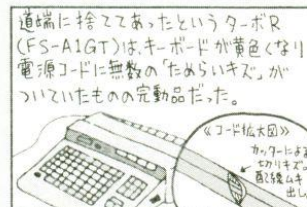 道端に捨ててあったというターボR
(FS-A1GT)は、キーボードが黄色くなり
電源コードに無数の「ためらいキズ」が
ついていたものの完動品だった。
《コード拡大図》
カッターによる
切りキズ。
配線ムキ
出し